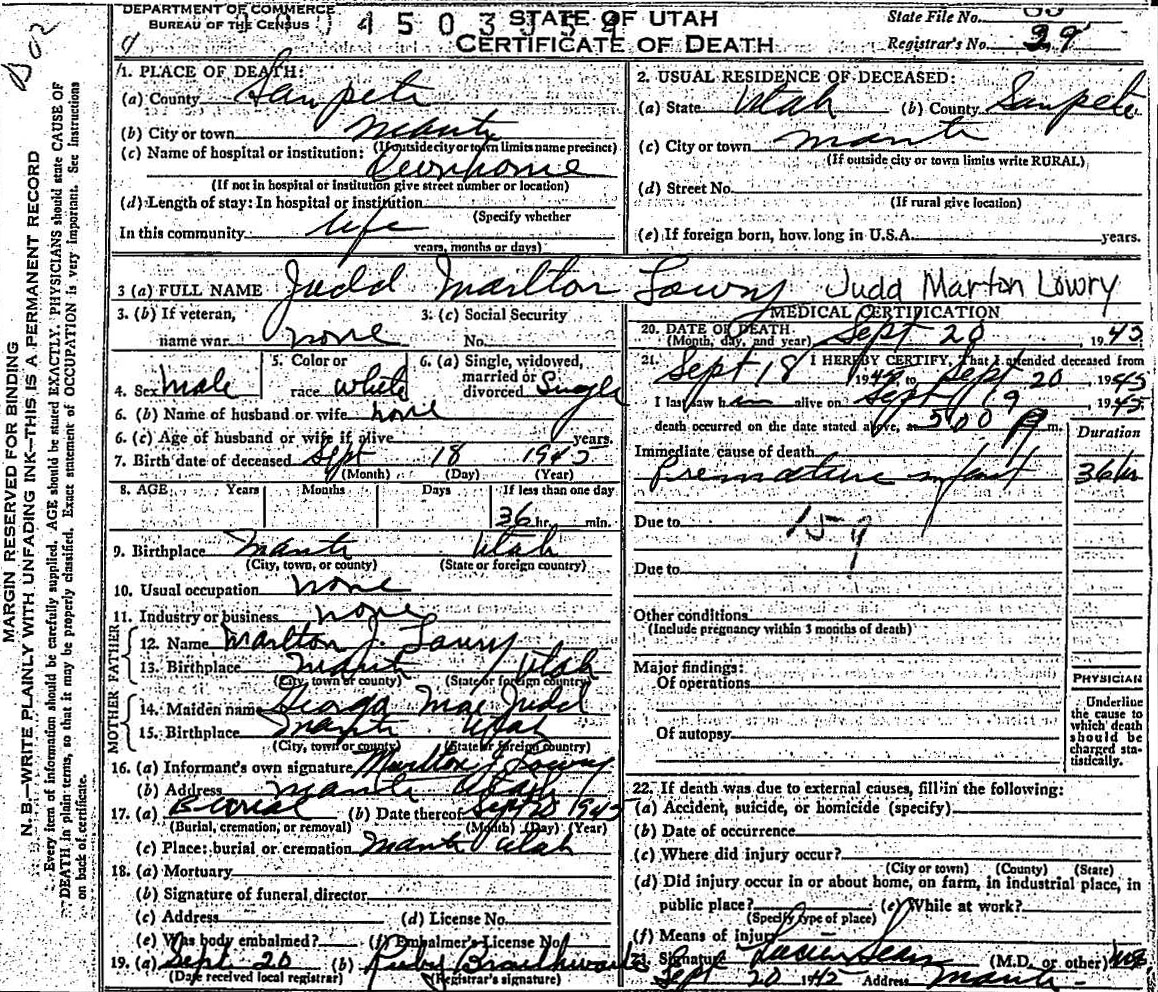 DEPARTMENT OF COMMERCE
BUREAU OF THE CENSUS
STATE OF UTAH
CERTIFICATE OF DEATH
State File No.
Registrar's No. 29
1. PLACE OF DEATH:
(a) County Sanpete
(b) City or town Manti
(If outside city or town limits name precinct)
(c) Name of hospital or institution:
(If not in hospital or institution give street number or location)
(d) Length of stay: In hospital or institution
(Specify whether
In this community life
years, months or days)
2. USUAL RESIDENCE OF DECEASED:
(a) State Utah (b) County Sanpete
(c) City or town Manti
(If outside city or town limits write RURAL)
(d) Street No.
(If rural give location)
(e) If foreign born, how long in U.S.A. years.
3 (a) FULL NAME Judd Marlton Lowry Judd Marton Lowry
3. (b) If veteran, name war none
3. (c) Social Security No.
4. Sex male
5. Color or race white
6. (a) Single, widowed, married or divorced Single
6. (b) Name of husband or wife none
6. (c) Age of husband or wife if alive years.
7. Birth date of deceased Sept 18 1945
(Month) (Day) (Year)
8. AGE Years Months Days If less than one day
36 hr. min.
9. Birthplace Manti Utah
(City, town, or county) (State or foreign country)
10. Usual occupation none
11. Industry or business none
FATHER
12. Name Marlton J. Lowry
13. Birthplace Manti Utah
(City, town or county) (State or foreign country)
MOTHER
14. Maiden name Georga Mae Judd
15. Birthplace Manti Utah
(City, town or county) (State or foreign country)
16. (a) Informant's own signature Marlton J Lowry
(b) Address Manti Utah
17. (a) Burial (b) Date thereof Sept 20 1945
(Burial, cremation, or removal) (Month) (Day) (Year)
(c) Place: burial or cremation Manti Utah
18. (a) Mortuary
(b) Signature of funeral director
(c) Address (d) License No.
(e) Was body embalmed? (f) Embalmer's License No.
19. (a) Sept. 20 (b) Ruby Braithwaite
(Date received local registrar) (Registrar's signature)
MEDICAL CERTIFICATION
20. DATE OF DEATH Sept 20, 1945
(Month, day, and year)
21. I HEREBY CERTIFY, That I attended deceased from
Sept 18, 1945 to Sept 20, 1945
I last saw him alive on Sept 19, 1945
death occurred on the date stated above, at 500 P m.
Duration
Immediate cause of death
Premature infant 36 hr
Due to 159
Due to
Other conditions
(Include pregnancy within 3 months of death)
Major findings:
Of operations
Of autopsy
PHYSICIAN
Underline
the cause to
which death
should be
charged sta-
tistically.
22. If death was due to external causes, fill in the following:
(a) Accident, suicide, or homicide (specify)
(b) Date of occurrence
(c) Where did injury occur?
(City or town) (County) (State)
(d) Did injury occur in or about home, on farm, in industrial place, in
public place? (e) While at work?
(Specify type of place)
(f) Means of injury
23. Signature Lucien Sears (M.D. or other)
Sept 20 1945 Address Manti
MARGIN RESERVED FOR BINDING
N.B.—WRITE PLAINLY WITH UNFADING INK—THIS IS A PERMANENT RECORD
Every item of information should be carefully supplied. AGE should be stated EXACTLY. PHYSICIANS should state CAUSE OF
DEATH in plain terms, so that it may be properly classified. Exact statement of OCCUPATION is very important. See Instructions
on back of certificate.